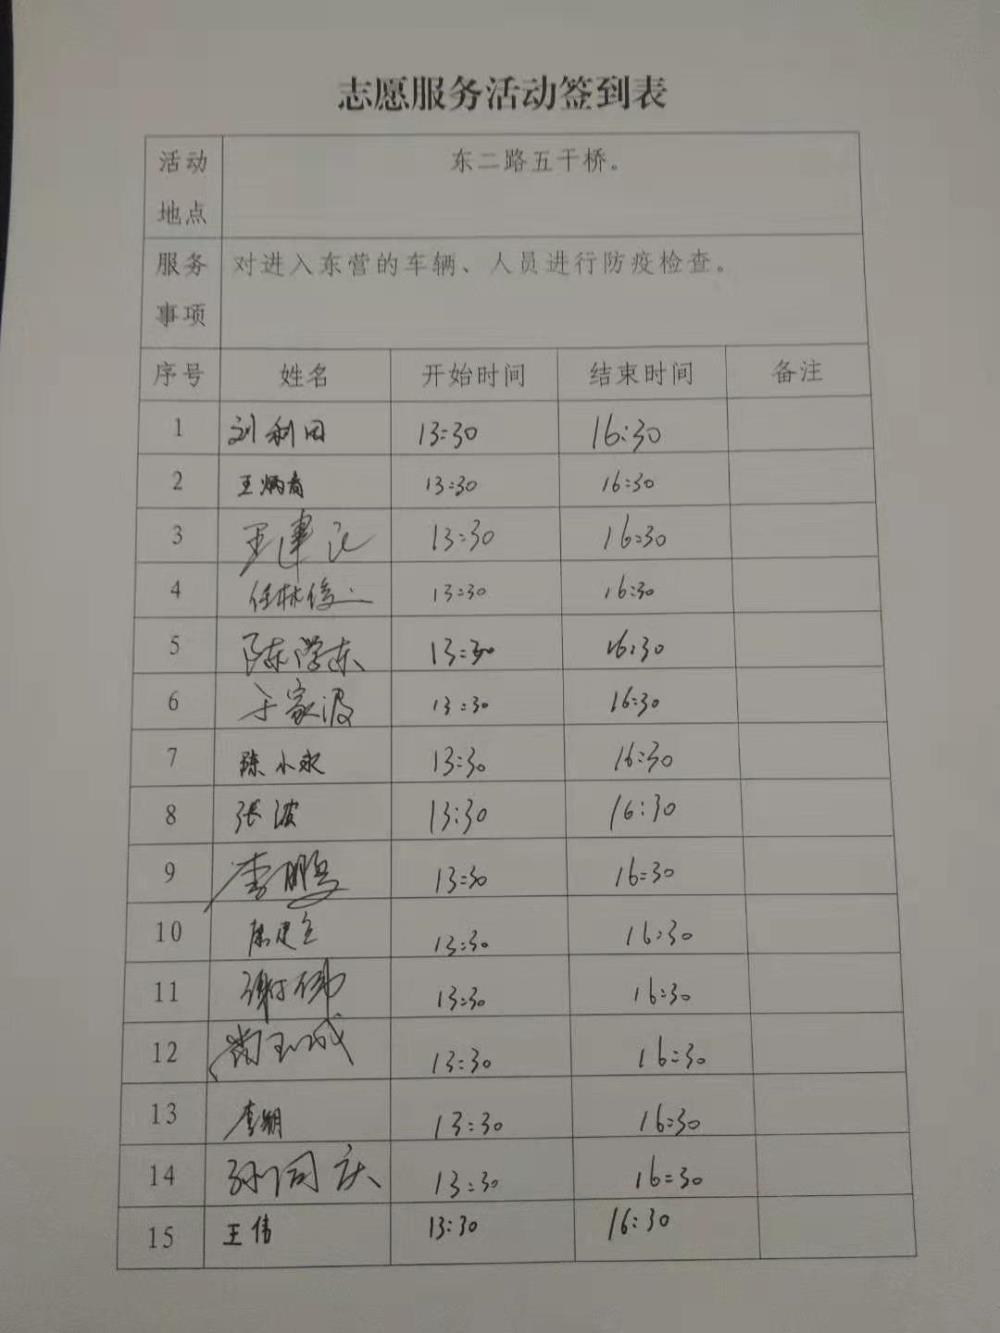 志愿服务活动签到表
活动地点 东二路五干桥。
服务事项 对进入东营的车辆、人员进行防疫检查。
序号 姓名 开始时间 结束时间 备注
1 刘利田 13:30 16:30
2 王炳 13:30 16:30
3 王建 13:30 16:30
4 任林俊 13:30 16:30
5 陈学东 13:30 16:30
6 于家波 13:30 16:30
7 陈小永 13:30 16:30
8 张波 13:30 16:30
9 李鹏 13:30 16:30
10 13:30 16:30
11 谢伟 13:30 16:30
12 尚玉成 13:30 16:30
13 李朋 13:30 16:30
14 孙同庆 13:30 16:30
15 王伟 13:30 16:30